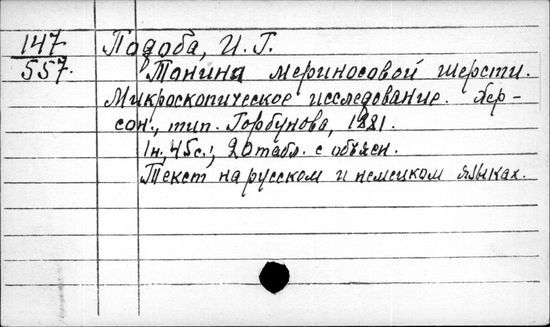 147
557.
Подоба, И. Г.
Тонина мериносовой шерсти.
Микроскопическое исследование. Хер-
сон, тип. Горбунова, 1881.
1н., 45с.; 20 табл. с объясн.
Текст на русском и немецком языках.